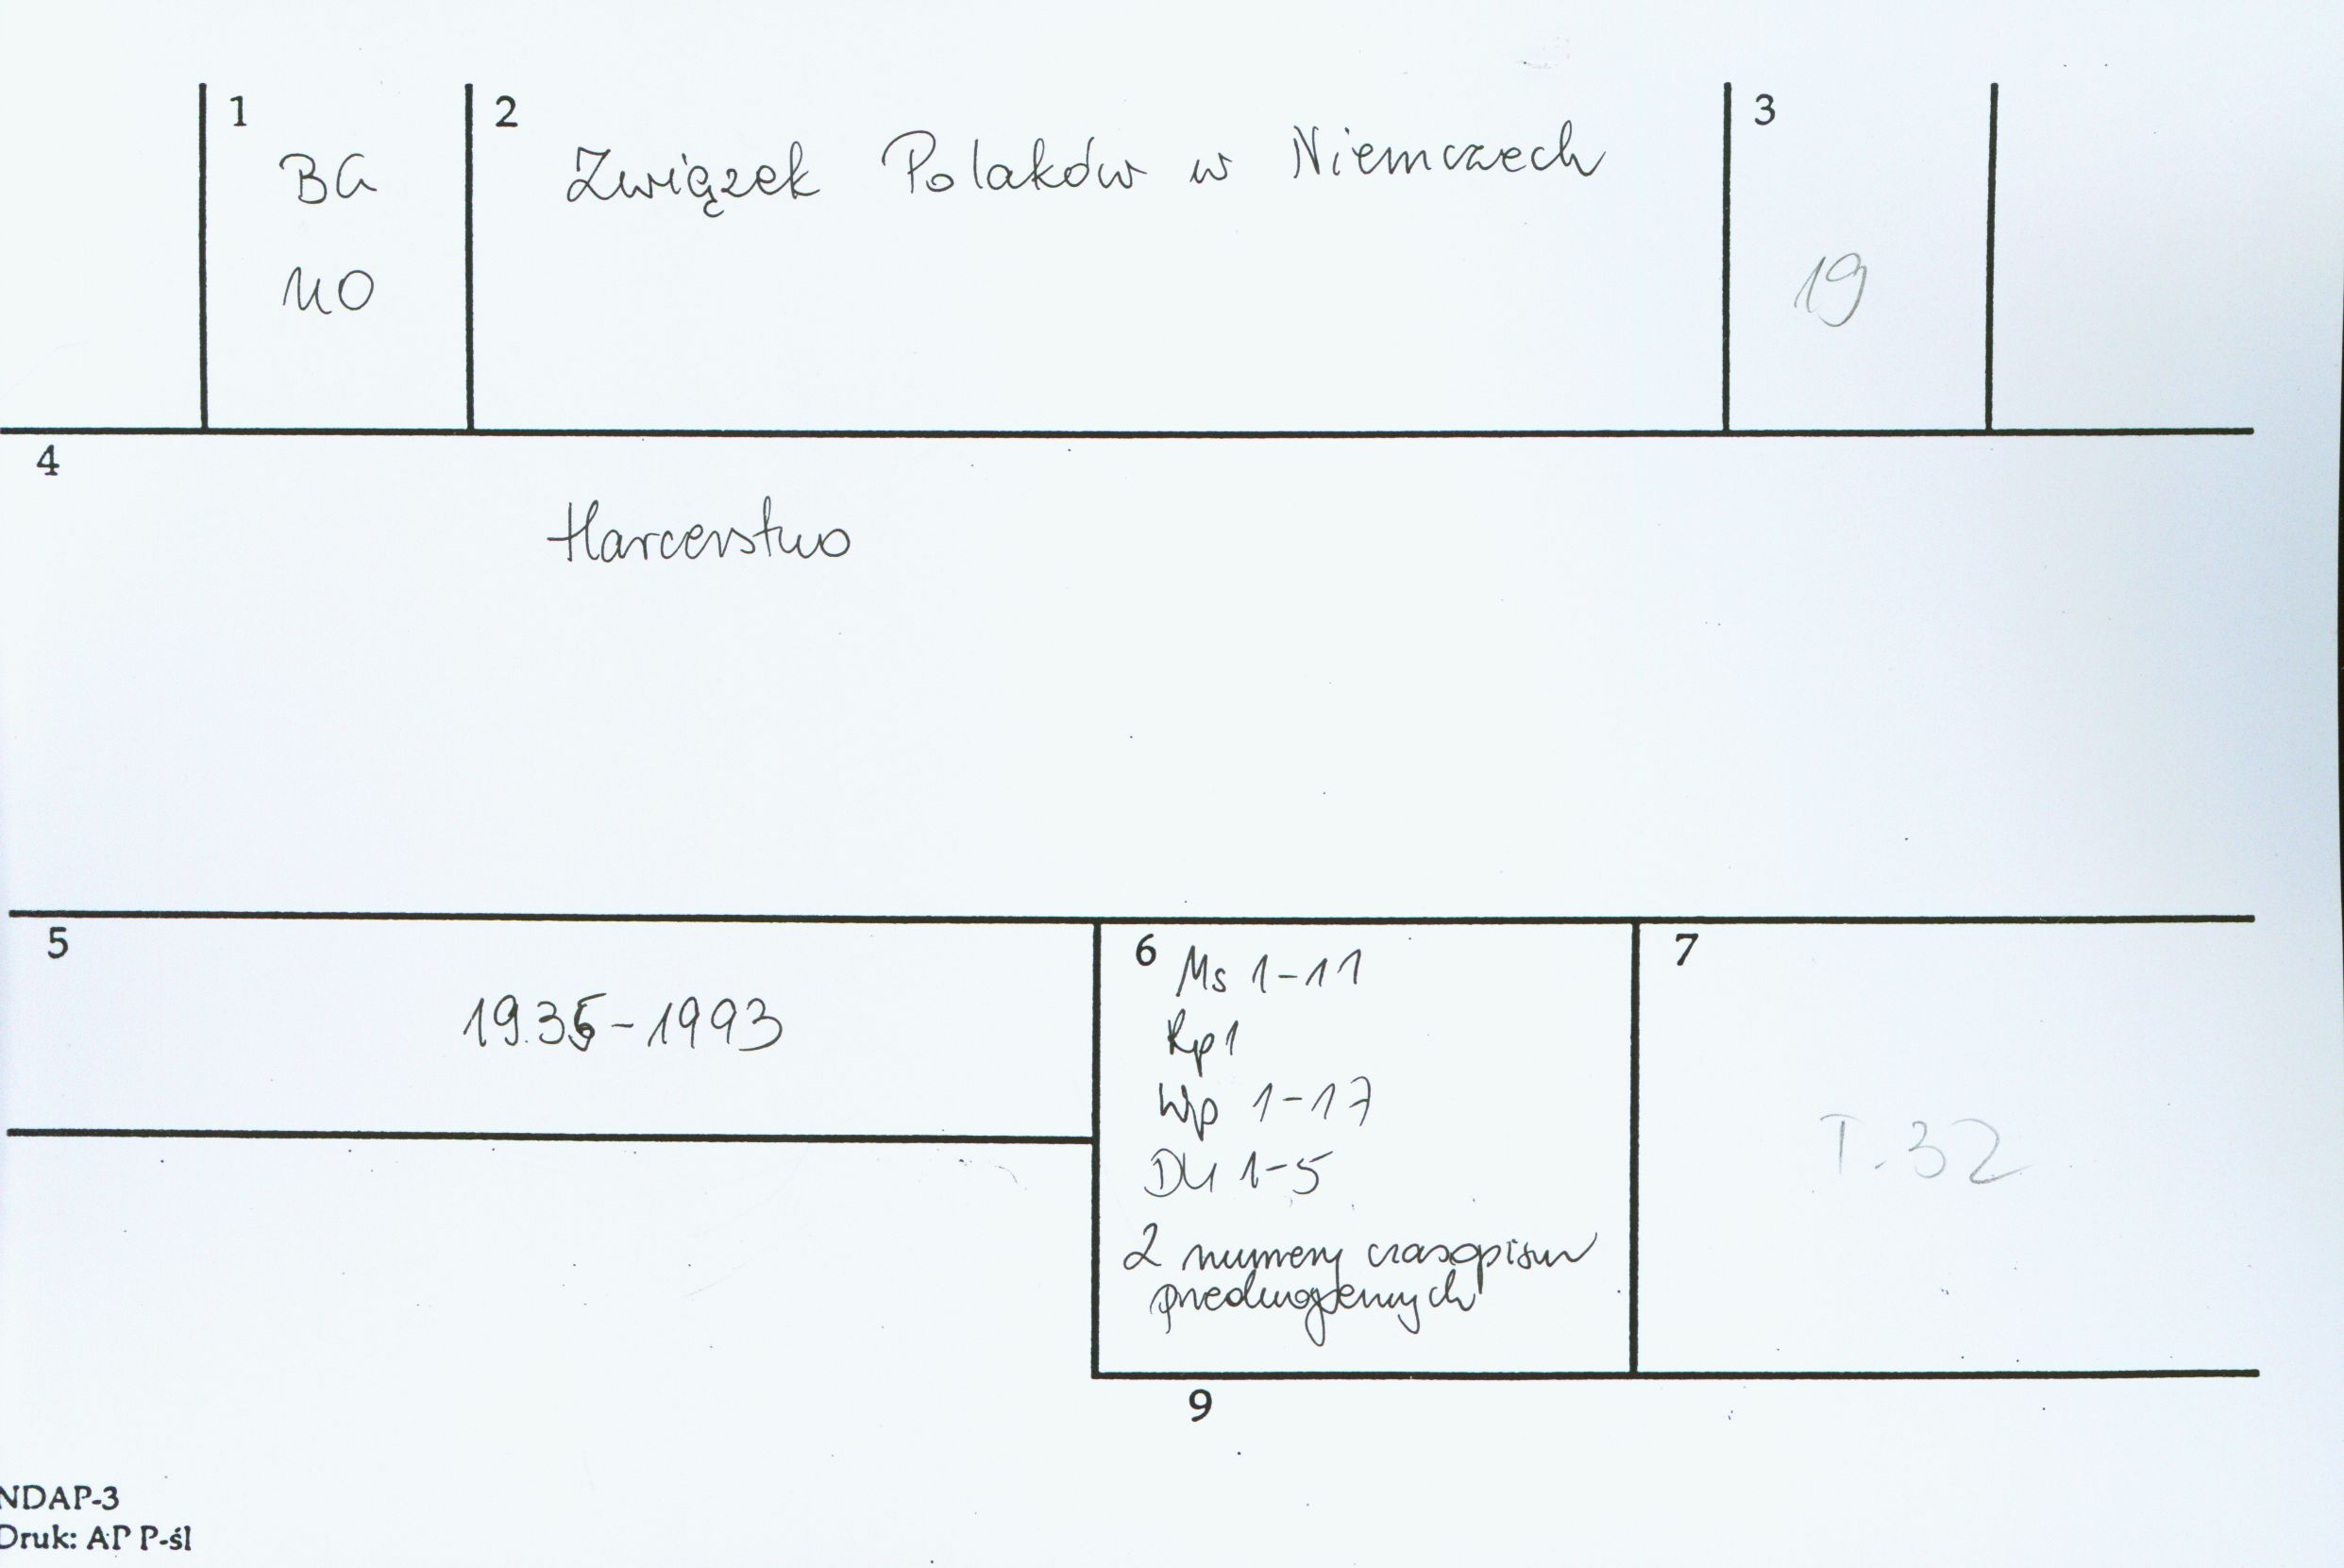 1
BG
UO
2
Związek Polaków w Niemczech
3
19
4
Harcerstwo
5
1935-1993
6
Ms 1-11
Rp 1
Wp 1-17
DU 1-5
2 numery czasopism
przedwojennych
7
T. 32
9
NDAP-3
Druk: AP P-śl